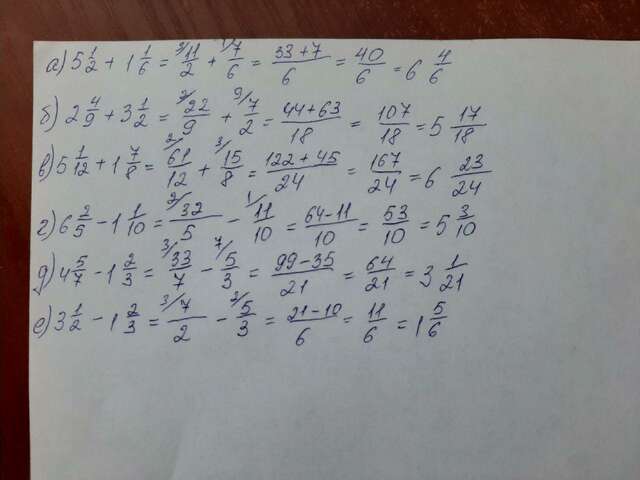 а) 5 1/2 + 1 1/6 = ³⁄11/2 + ¹⁄7/6 = 33+7/6 = 40/6 = 6 4/6
б) 2 4/9 + 3 1/2 = ²⁄22/9 + ⁹⁄7/2 = 44+63/18 = 107/18 = 5 17/18
в) 5 1/12 + 1 7/8 = ²⁄61/12 + ³⁄15/8 = 122+45/24 = 167/24 = 6 23/24
г) 6 2/5 - 1 1/10 = ²⁄32/5 - ¹⁄11/10 = 64-11/10 = 53/10 = 5 3/10
д) 4 5/7 - 1 2/3 = ³⁄33/7 - ⁷⁄5/3 = 99-35/21 = 64/21 = 3 1/21
е) 3 1/2 - 1 2/3 = ³⁄7/2 - ²⁄5/3 = 21-10/6 = 11/6 = 1 5/6